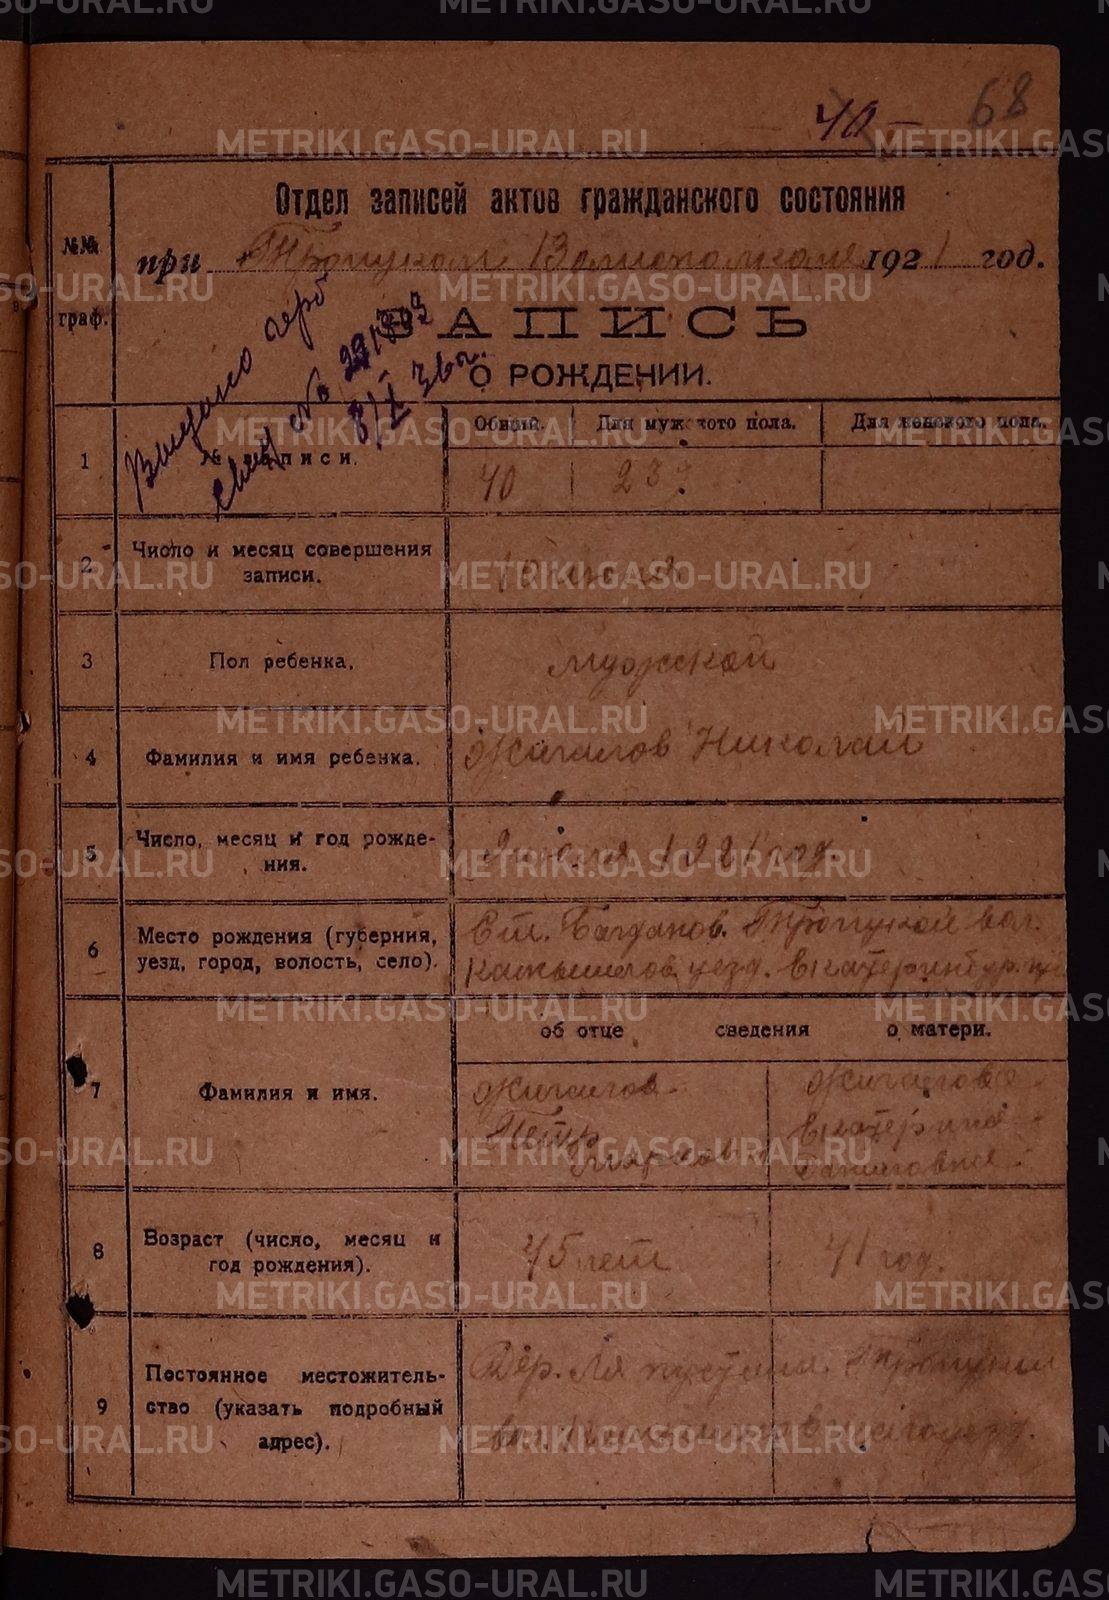 40 –
68
Отдел записей актов гражданского состояния
№№ граф.
при Троицком Волисполкоме 1921 год.
ЗАПИСЬ
О РОЖДЕНИИ.
Выдано
свид №
8/X 36 г.
Общий. Для мужского пола. Для женского пола.
1 № записи. 40 23
2 Число и месяц совершения
записи. 10 июля
3 Пол ребенка. мужской
4 Фамилия и имя ребенка. Жигалов Николай
5 Число, месяц и год рожде-
ния. июля 1921 год.
6 Место рождения (губерния, Ст. Богданов. Троицкой вол.
уезд, город, волость, село). Камышлов. уезд. Екатеринбур.
об отце сведения о матери.
7 Фамилия и имя. Жигалов Жигалова
Петр Екатерина
Даниловна
8 Возраст (число, месяц и
год рождения). 45 лет 41 год.
9 Постоянное местожитель- Дер. Троицкой
ство (указать подробный
адрес). вол. Камышлов
METRIKI.GASO-URAL.RU